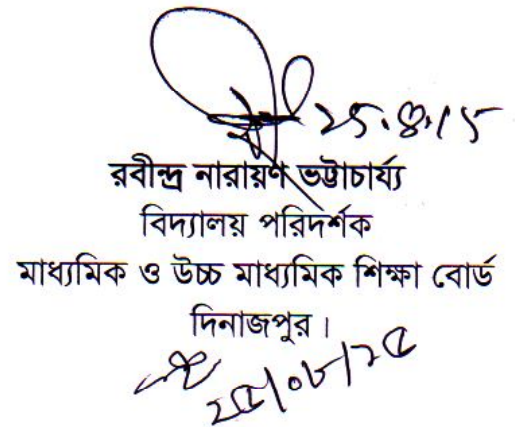 রবীন্দ্র নারায়ণ ভট্টাচার্য্য
বিদ্যালয় পরিদর্শক
মাধ্যমিক ও উচ্চ মাধ্যমিক শিক্ষা বোর্ড
দিনাজপুর।
২৫/০৮/১৫